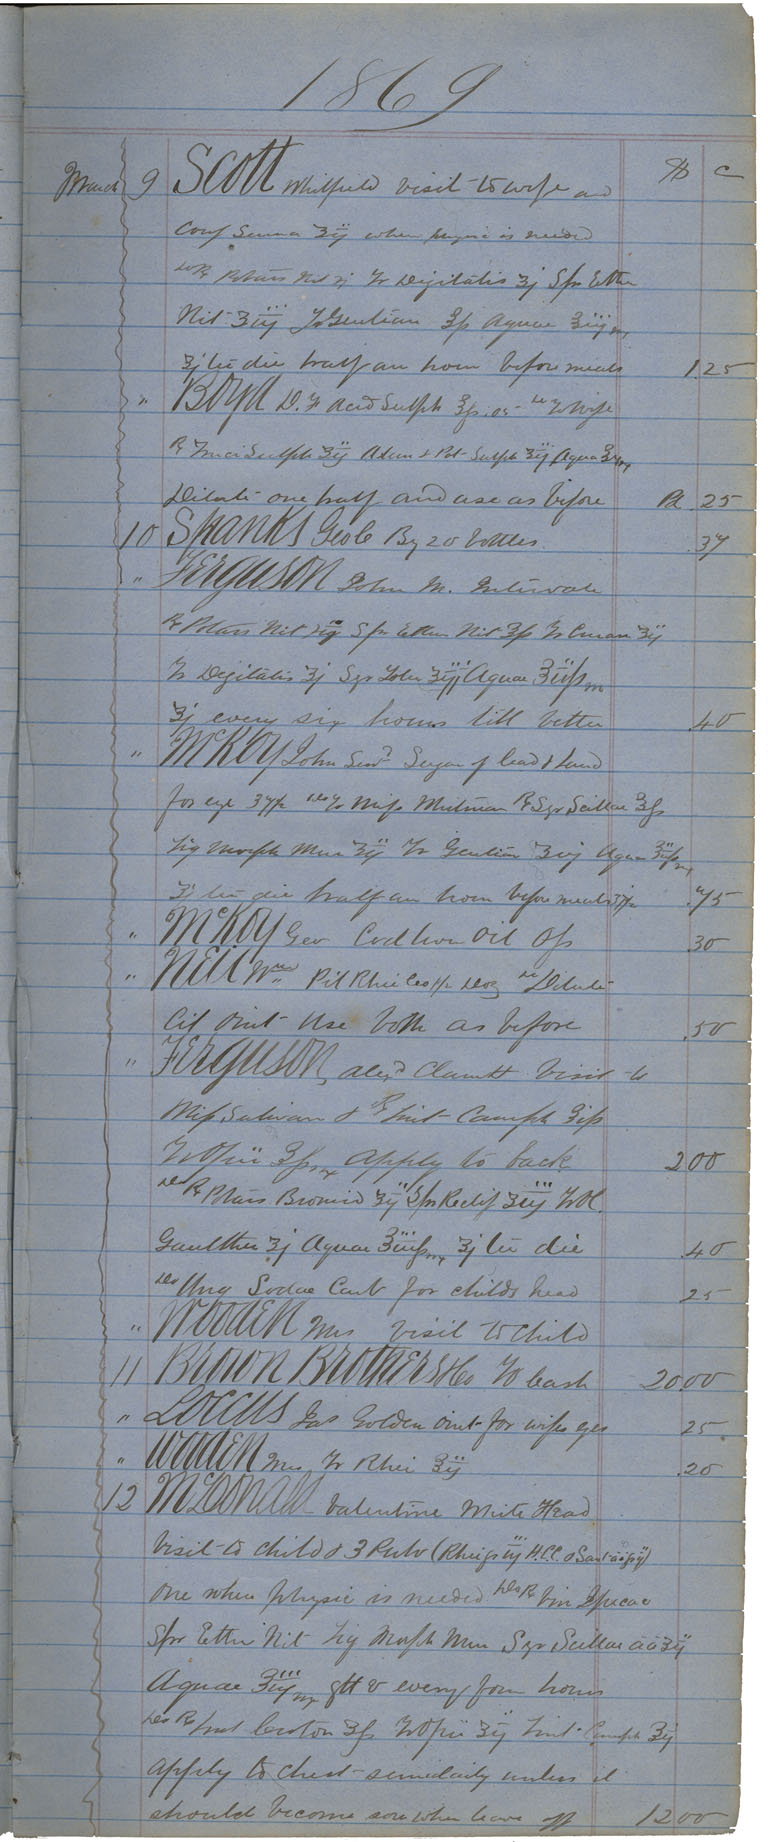 1869
$ c
March 9 SCOTT Whitfield visit to wife and
Conf Senna ʒij when physic is needed
Do ℞ Potass Nit ʒj Tr Digitalis ʒj Sps Ether
Nit ʒiij Tr Gentian ʒss Aquae ʒiij m
ʒj ter die half an hour before meals 1.25
" BOYD D. F Acid Sulph ʒss .05 Do To Wife
℞ Zinci Sulph ʒij Alum & Pot Sulph ʒiij Aqua m
Dilute one half and use as before Pd .25
10 SHANKS Geo C By 20 bottles .37
" FERGUSON John M. Intervale
℞ Potass Nit Sps Ether Nit ʒss Tr ʒij
Tr Digitalis ʒj Syr Tolu ʒiij Aquae ʒiiss m
ʒj every six hours till better .40
" McKOY John Senr Sugar of lead & Laud
for eye Do To Miss ℞ Syr Scillae ʒss
Liq Morph Mur ʒij Tr Gentian Aquae m
ʒj ter die half an hour before meals .75
" McKOY Geo Cod liver Oil 30
" NEIL Wm Pil Rhei Co Doz Do Dilute
Cit Oint Use both as before .50
" FERGUSON, Alexr Visit to
Miss Sulivan & ℞ Lint Camph
Tr Opii ʒss m Apply to back 2 00
Do ℞ Potass Bromid ʒij Sps Rectif ʒiij Tr Ol
Gaulther ʒj Aquae m ʒj ter die .40
Do Ung Sodae Carb for childs head 25
" WOODEN Mrs Visit to Child
11 BROWN BROTHERS & Co To Cash 20 00
" LOCCUS Jas Golden Oint for wifes eyes 25
" WOODEN Mrs Tr Rhei ʒij .20
12 McDONALD Valentine White Head
Visit to child & 3 Pulv (Rhei H.C.C. & Sant)
one when physic is needed Do ℞ Vin Ipecac
Sps Ether Nit Liq Morph Mur Syr Scillae aa ʒij
Aquae ʒiij m gtt v every four hours
Do ℞ Lint Croton ʒss Tr Opii ʒij Lint Camph ʒij
Apply to chest semidaily unless it
should become sore when leave off 12 00